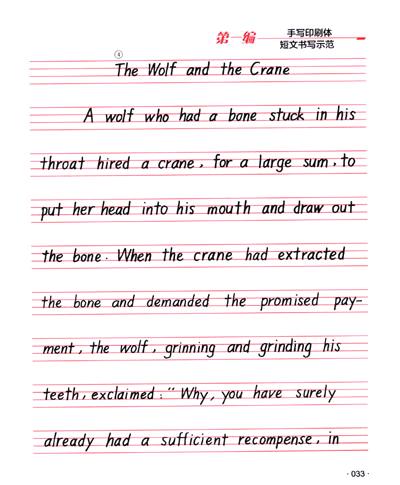 第一编
手写印刷体
短文书写示范
④
The Wolf and the Crane
A wolf who had a bone stuck in his
throat hired a crane, for a large sum, to
put her head into his mouth and draw out
the bone. When the crane had extracted
the bone and demanded the promised pay-
ment, the wolf, grinning and grinding his
teeth, exclaimed: "Why, you have surely
already had a sufficient recompense, in
· 033 ·